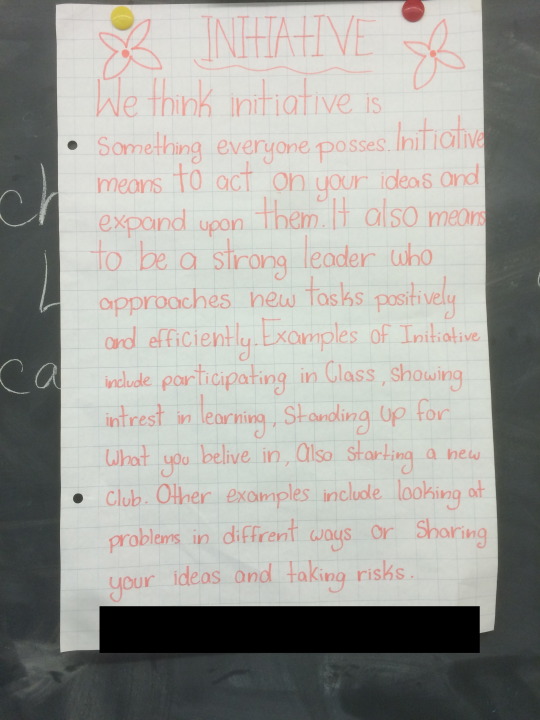 INITIATIVE
We think initiative is
Something everyone posses. Initiative
means to act on your ideas and
expand upon them. It also means
to be a strong leader who
approaches new tasks positively
and efficiently. Examples of Initiative
include participating in Class, showing
intrest in learning, Standing up for
What you belive in, Also starting a new
Club. Other examples include looking at
problems in diffrent ways or Sharing
your ideas and taking risks.
ch
L
ca